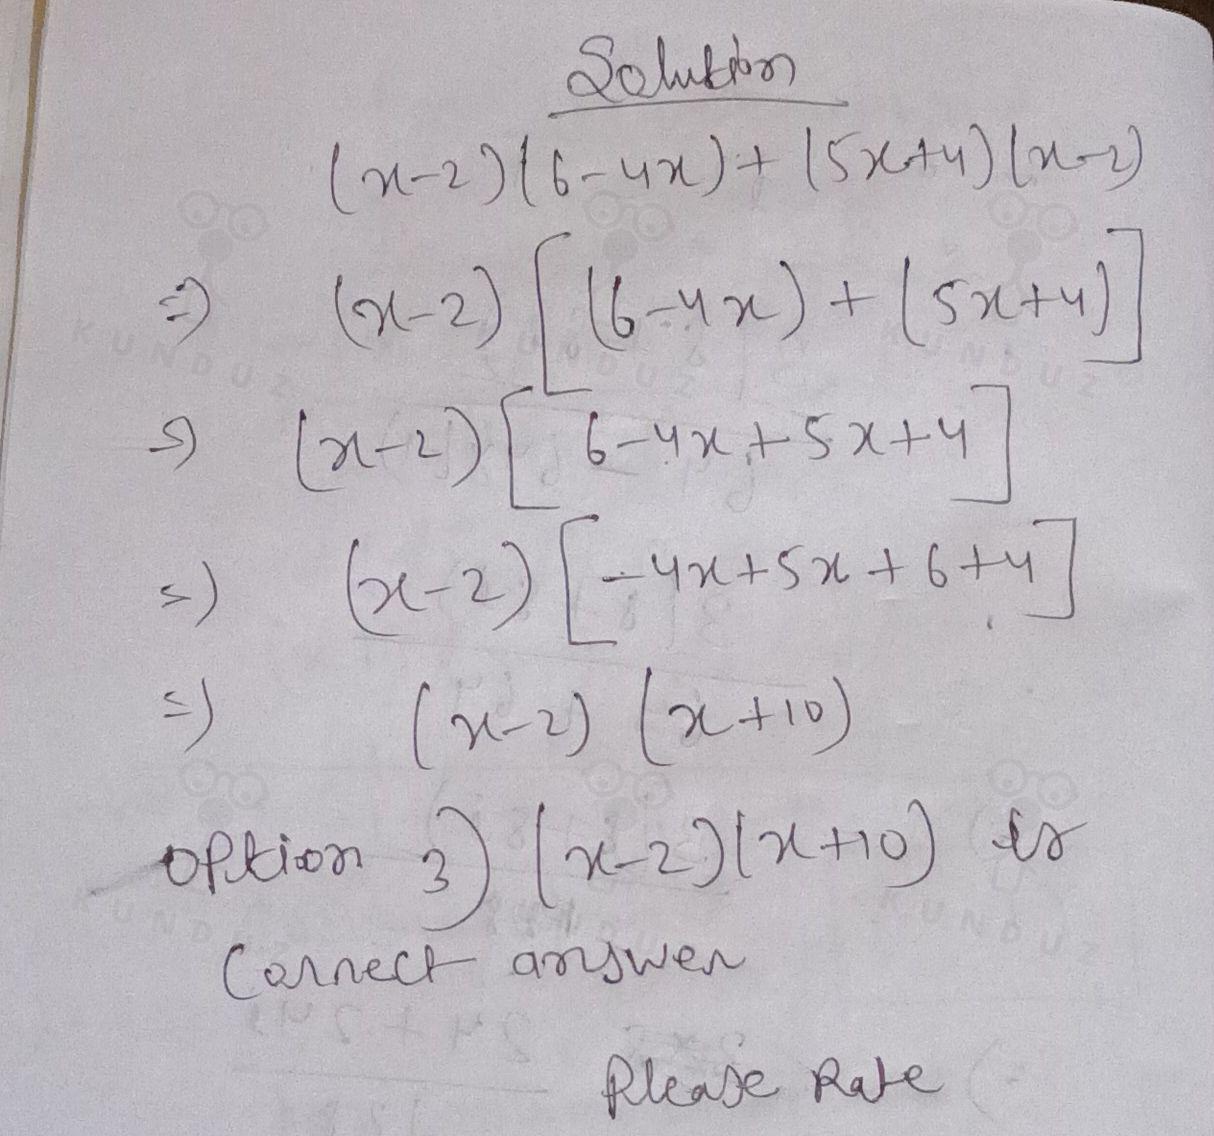 Solution
(x-2)(6-4x)+(5x+4)(x-2)
⇒ (x-2)[(6-4x)+(5x+4)]
⇒ (x-2)[6-4x+5x+4]
⇒ (x-2)[-4x+5x+6+4]
⇒ (x-2)(x+10)
option 3) (x-2)(x+10) is
Correct answer
Please Rate
KUNDUZ
KUNDUZ
KUNDUZ
KUNDUZ
KUNDUZ